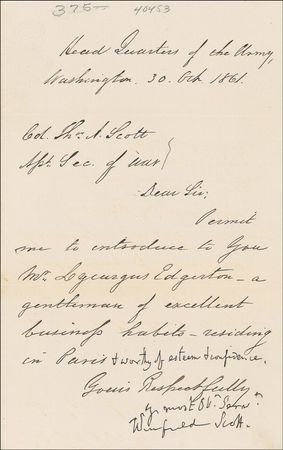 375— 40453
Head Quarters of the Army,
Washington. 30. Oct. 1861.
Col. Thos. A. Scott
Asst. Sec. of War
Dear Sir;
Permit
me to introduce to You
Mr. Lycurgus Edgerton — a
gentleman of excellent
business habits — residing
in Paris & worthy of esteem & confidence.
Yours Respectfully
Yr. most Obt. Servt.
Winfield Scott.